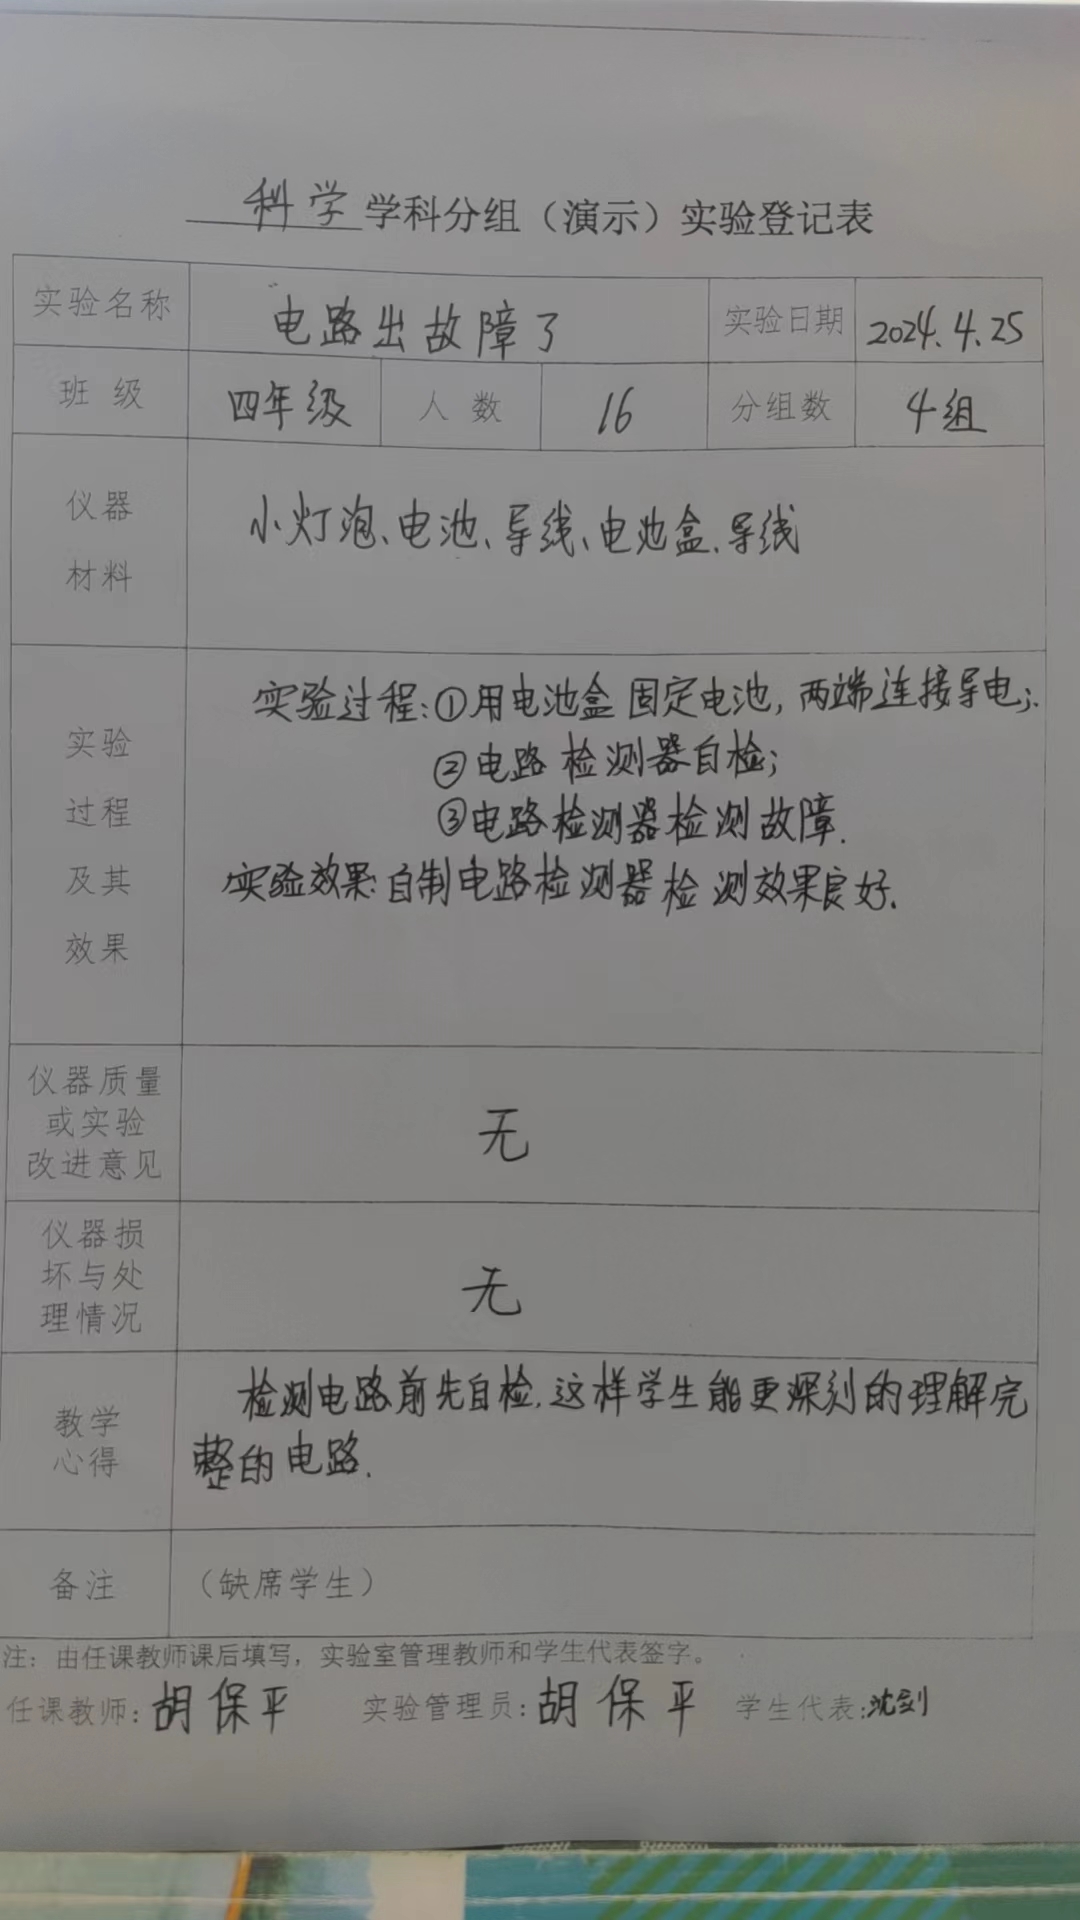 科学 学科分组（演示）实验登记表
实验名称 电路出故障了 实验日期 2024.4.25
班级 四年级 人数 16 分组数 4组
仪器
材料
小灯泡、电池、导线、电池盒、导线
实验
过程
及其
效果
实验过程:①用电池盒固定电池,两端连接导电;
②电路检测器自检;
③电路检测器检测故障.
实验效果:自制电路检测器检测效果良好.
仪器质量
或实验
改进意见
无
仪器损
坏与处
理情况
无
教学
心得
检测电路前先自检.这样学生能更深刻的理解完
整的电路.
备注 （缺席学生）
注：由任课教师课后填写，实验室管理教师和学生代表签字。
任课教师:胡保平 实验管理员:胡保平 学生代表:沈